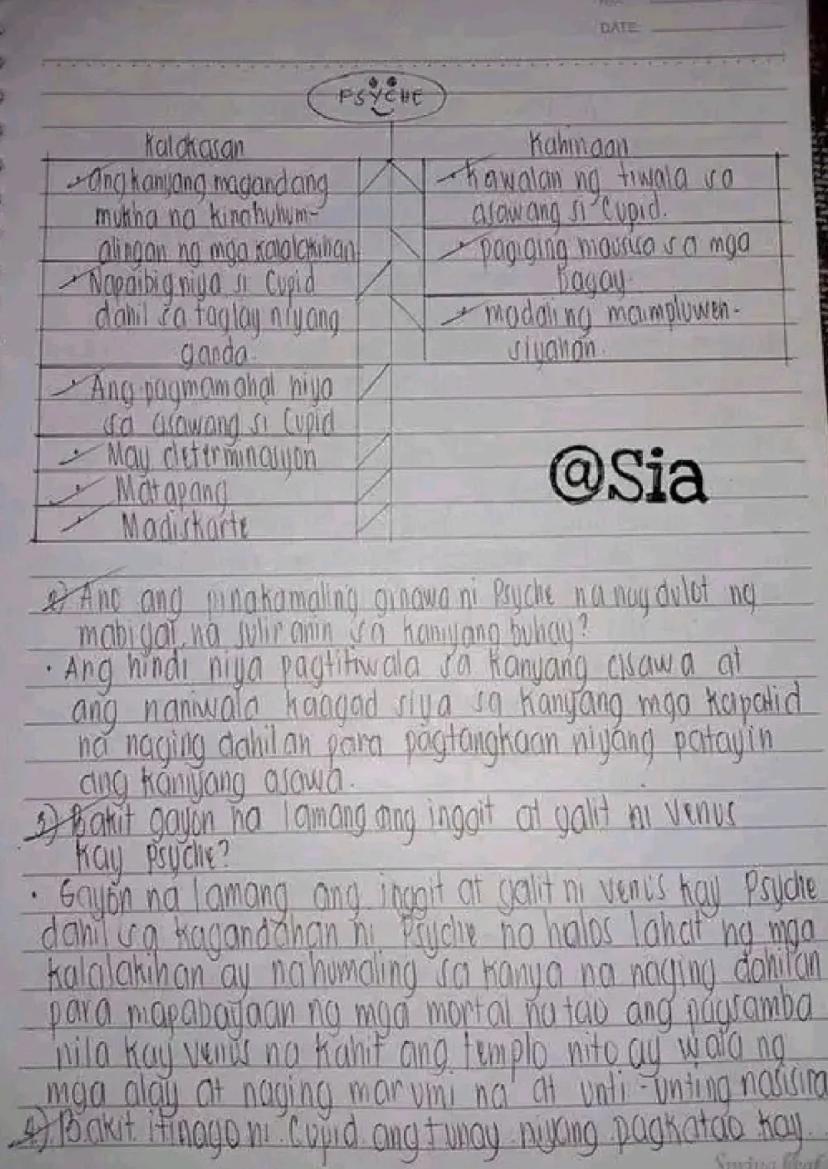 DATE:
PSYCHE
Kalakasan
Ang kanyang magandang
mukha na kinahuhum-
alingan ng mga kalalakihan
Napaibig niya si Cupid
dahil sa taglay niyang
ganda.
Ang pagmamahal niya
sa asawang si Cupid
May determinasyon
Matapang
Madiskarte
Kahinaan
Kawalan ng tiwala sa
asawang si Cupid.
pagiging mausisa sa mga
Bagay.
madaling maimpluwen-
siyahan.
@Sia
2) Ano ang pinakamaling ginawa ni Psyche na nagdulot ng
mabigat na suliranin sa kaniyang buhay?
• Ang hindi niya pagtitiwala sa kanyang asawa at
ang naniwala kaagad siya sa kanyang mga kapatid
na naging dahilan para pagtangkaan niyang patayin
ang kaniyang asawa.
3) Bakit gayon na lamang ang inggit at galit ni Venus
kay psyche?
• Gayon na lamang ang inggit at galit ni venus kay Psyche
dahil sa kagandahan ni Psyche na halos lahat ng mga
kalalakihan ay nahumaling sa kanya na naging dahilan
para mapabayaan ng mga mortal na tao ang pagsamba
nila kay venus na kahit ang templo nito ay wala ng
mga alay at naging marumi na at unti-unting nasisira
4) Bakit itinago ni Cupid ang tunay niyang pagkatao kay